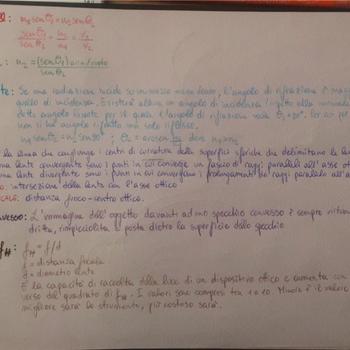 n₁senθ₁ = n₂senθ₂
senθ₁/senθ₂ = n₂/n₁ = v₁/v₂
n₂ = senθ₁/senθ₂
Se una radiazione incide su un mezzo meno denso, l'angolo di rifrazione è
quello di incidenza. Esisterà allora un angolo di incidenza
detto angolo limite per il quale l'angolo di rifrazione vale θ₂ = 90°. Per
non si ha angolo rifratto ma solo riflesso.
n₁senθ₁ = n₂sen90° ; θ = arcsen n₂/n₁ dove n₂<n₁
la linea che congiunge i centri di curvatura delle superfici sferiche che delimitano la
una lente convergente sono i punti in cui converge un fascio di raggi paralleli all'asse
una lente divergente sono i punti in cui convergono i prolungamenti dei raggi paralleli all'a
intersezione della lente con l'asse ottico
CALE: distanza fuoco-centro ottico.
NVESSO: L'immagine dell'oggetto davanti ad uno specchio convesso è sempre
dritta, rimpicciolita e posta dietro la superficie dello specchio
f#: f# = f/d
f = distanza focale
d = diametro lente
È la capacità di raccolta della luce di un dispositivo ottico e aumenta con
verso del quadrato di f#. I valori sono compresi tra 1 e 10. Minore è il valore
migliore sarà lo strumento, più costoso sarà.